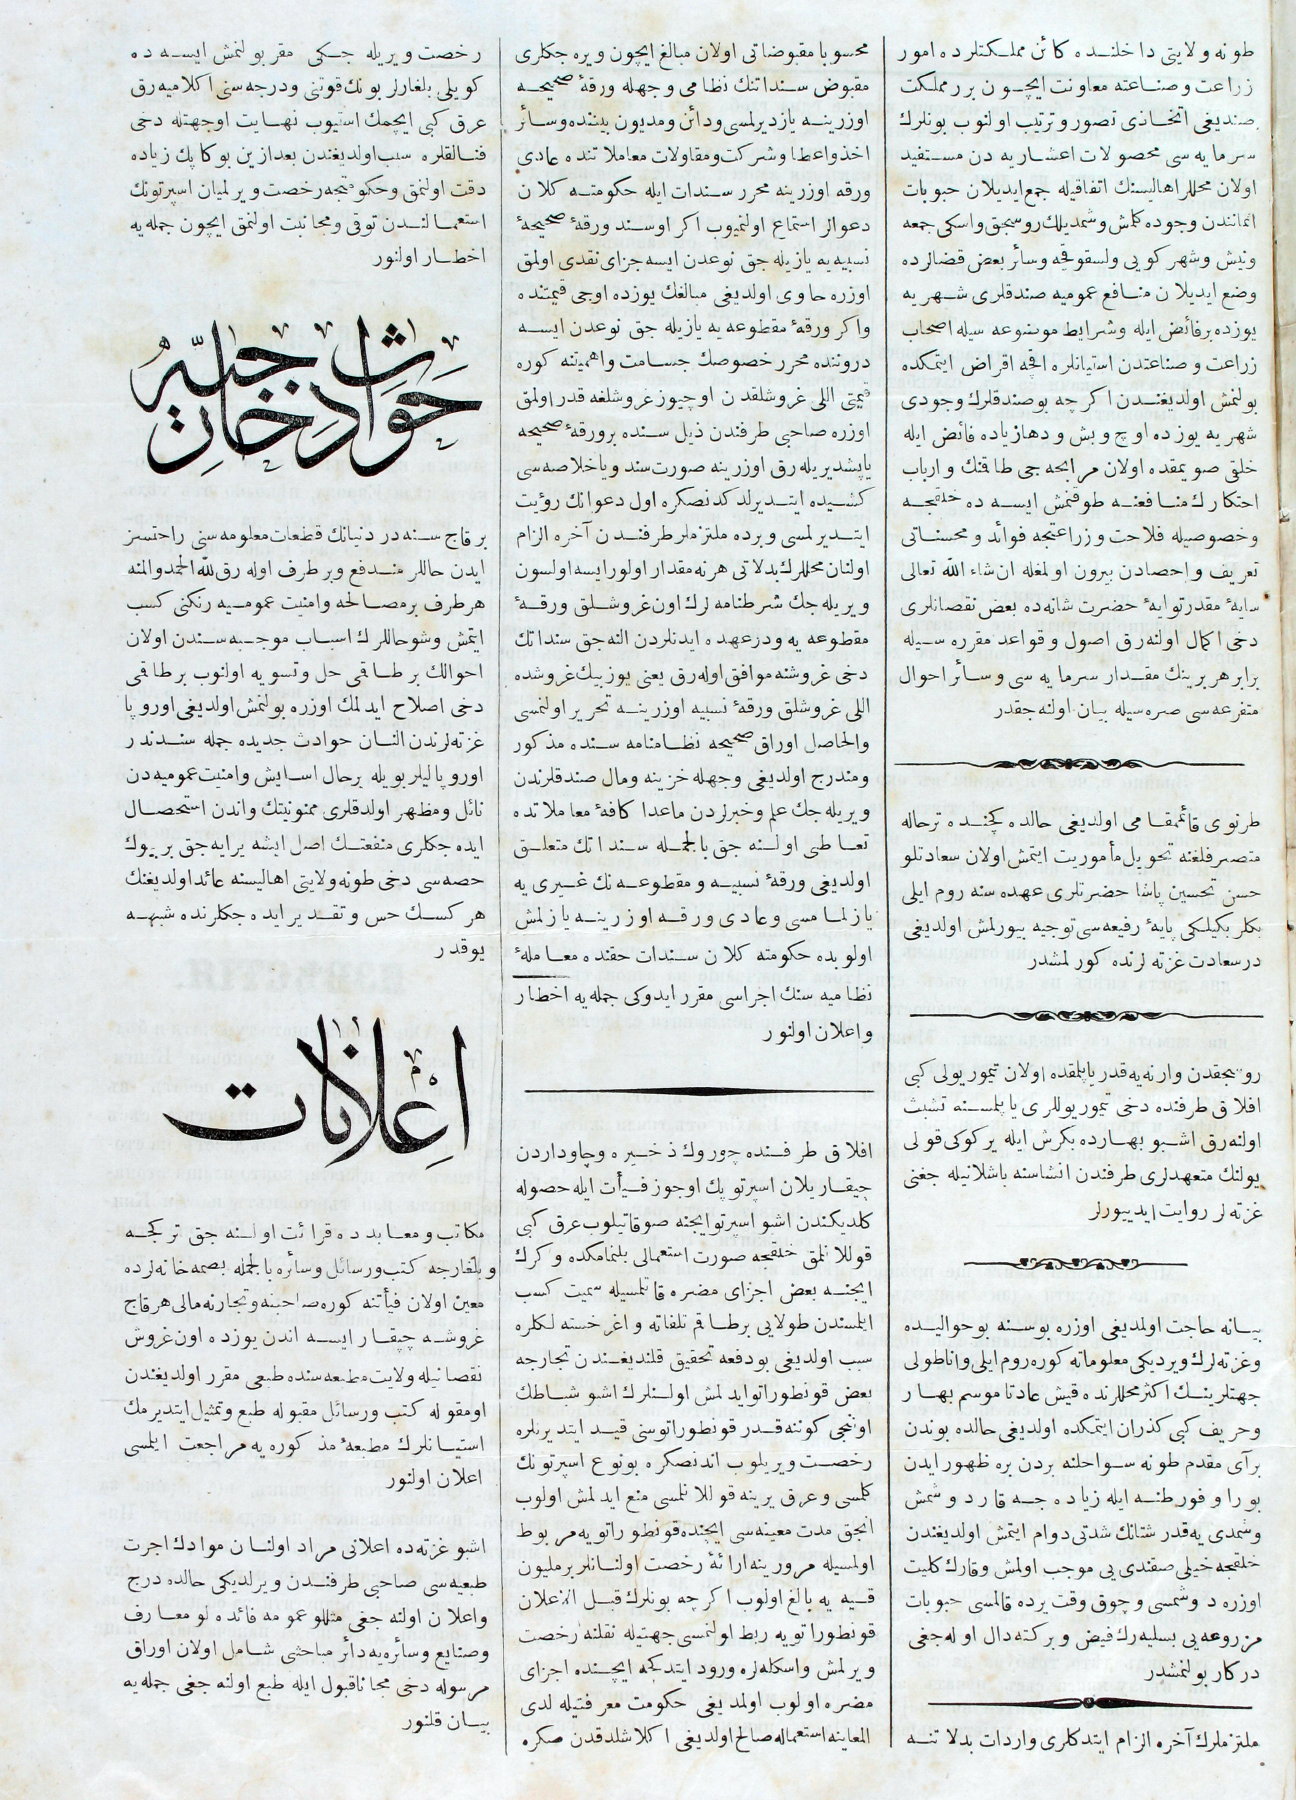 طونه ولايتى داخلنده كائن مملكتلرده امور
زراعت و صناعته معاونت ايچون بر مملكت
صنديغى اتخاذى تصور و ترتيب اولنوب بونلرك
سرمايه سى محصولات اعشاريه دن مستفيد
اولان محللر اهاليسنك اتفاقيله جمع ايديلان حبوبات
اثمانندن وجوده كلمش و شمديلك روسجق و اسكى جمعه
و نيش و شهركويى و لسقوفچه و سائر بعض قضالرده
وضع ايديلان منافع عموميه صندقلرى شهريه
يوزده بر فائض ايله و شرايط موضوعه سيله اصحاب
زراعت و صناعتدن استيانلره اقچه اقراض ايتمكده
بولنمش اولديغندن اكرچه بو صندقلرك وجودى
شهريه يوزده اوچ و بش و دها زياده فائض ايله
خلقى صويمقده اولان مرابحه جى طاقنك و ارباب
احتكارك منافعنه طوقنمش ايسه ده خلقجه
و خصوصيله فلاحت و زراعتجه فوائد و محسناتى
تعريف و احصادن بيرون اولمغله ان شاء الله تعالى
سايهٔ مقدرتوايهٔ حضرت شانه ده بعض نقصانلرى
دخى اكمال اولنه رق اصول و قواعد مقرره سيله
برابر هر برينك مقدار سرمايه سى و سائر احوال
متفرعه سى صره سيله بيان اولنه جقدر
طرنوى قائممقامى اولديغى حالده كچنده ترحاله
متصرفلغنه تحويل مأموريت ايتمش اولان سعادتلو
حسن تحسين پاشا حضرتلرى عهده سنه روم ايلى
بكلربكيلكى پايهٔ رفيعه سى توجيه بيورلمش اولديغى
درسعادت غزته لرنده كورلمشدر
روسجقدن وارنه يه قدر ياپلمقده اولان تيموريولى كبى
افلاق طرفنده دخى تيموريوللرى ياپلمسنه تشبث
اولنه رق اشبو بهارده بكرش ايله يركوكى قولى
يولنك متعهدلرى طرفندن انشاسنه باشلانيله جغنى
غزته لر روايت ايدييورلر
بيانه حاجت اولمديغى اوزره بو سنه بو حواليده
و غزته لرك ويرديكى معلوماته كوره روم ايلى و اناطولى
جهتلرينك اكثر محللرنده قيش عادتا موسم بهار
و خريف كبى كذران ايتمكده اولديغى حالده بوندن
بر آى مقدم طونه سواحلنه بردن بره ظهور ايدن
بورا و فورطنه ايله زياده جه قار دوشمش
و شمدى يه قدر شتانك شدتى دوام ايتمش اولديغندن
خلقجه خيلى صقندى يى موجب اولمش و قارك كليت
اوزره دوشمسى و چوق وقت يرده قالمسى حبوبات
مزروعه يى بسليه رك فيض و بركته دال اوله جغى
دركار بولنمشدر
ملتزملرك آخره الزام ايتدكلرى واردات بدلاتنه
محسوبا مقبوضاتى اولان مبالغ ايچون ويره جكلرى
مقبوض سنداتنك نظامى وجهله ورقهٔ صحيحه
اوزرينه يازديرلمسى و دائن و مديون بيننده و سائر
اخذ و اعطا و شركت و مقاولات معاملاتنده عادى
ورقه اوزرينه محرر سندات ايله حكومته كلان
دعوالر استماع اولنميوب اكر او سند ورقهٔ صحيحهٔ
نسبيه يه يازيله جق نوعدن ايسه جزاى نقدى اولمق
اوزره حاوى اولديغى مبالغك يوزده اوچى قيمتنده
و اكر ورقهٔ مقطوعه يه يازيله جق نوعدن ايسه
دروننده محرر خصوصك جسامت و اهميتنه كوره
قيمتى اللى غروشلقدن اوچيوز غروشلغه قدر اولمق
اوزره صاحبى طرفندن ذيل سنده بر ورقهٔ صحيحه
ياپشديريله رق اوزرينه صورت سند و يا خلاصه سى
كشيده ايتديرلدكدنصكره اول دعوانك رؤيت
ايتديرلمسى و برده ملتزملر طرفندن آخره الزام
اولنان محللرك بدلاتى هر نه مقدار اولورايسه اولسون
ويريله جك شرطنامه لرك اون غروشلق ورقهٔ
مقطوعه يه و درعهده ايدنلردن النه جق سنداتك
دخى غروشنه موافق اوله رق يعنى يوز بيك غروشده
اللى غروشلق ورقهٔ نسبيه اوزرينه تحرير اولنمسى
والحاصل اوراق صحيحه نظامنامه سنده مذكور
و مندرج اولديغى وجهله خزينه و مال صندقلرندن
ويريله جك علم و خبرلردن ماعدا كافهٔ معاملاتده
تعاطى اولنه جق بالجمله سنداتك متعلق
اولديغى ورقهٔ نسبيه و مقطوعه نك غيرى يه
يازلمامسى و عادى ورقه اوزرينه يازلمش
اولوبده حكومته كلان سندات حقنده معاملهٔ
نظاميه سنك اجراسى مقرر ايدوكى جمله يه اخطار
و اعلان اولنور
افلاق طرفنده چوروك ذخيره و چاوداردن
چيقاريلان اسپرتو پك اوجوز فيأت ايله حصوله
كلديكندن اشبو اسپرتو ايچنه صو قاتيلوب عرق كبى
قوللانلمق خلقجه صورت استعمالى بلنمامكده و كرك
ايچنه بعض اجزاى مضره قاتلمسيله سميت كسب
ايلمسندن طولايى بر طاقم تلفاته و اغر خسته لكلره
سبب اولديغى بو دفعه تحقيق قلنديغندن تجارجه
بعض قونطوراتو ايدلمش اولنلرك اشبو شباطك
اوننجى كوننه قدر قونطوراتوسنى قيد ايتديرنلره
رخصت ويريلوب اندنصكره بو نوع اسپرتونك
كلمسى و عرق يرينه قوللانلمسى منع ايدلمش اولوب
انجق مدت معينه سى ايچنده قونطوراتويه مربوط
اولمسيله مرورينه ارائهٔ رخصت اولنانلر بر مليون
قيه يه بالغ اولوب اكرچه بونلرك قبل الاعلان
قونطوراتويه ربط اولنمسى جهتيله نقلنه رخصت
ويرلمش و اسكله لره ورود ايتدكجه ايچنده اجزاى
مضره اولوب اولمديغى حكومت معرفتيله لدى
المعاينه استعماله صالح اولديغى اكلاشلدقدن صكره
رخصت ويريله جكى مقرر بولنمش ايسه ده
كويلى بلغارلر بونك قوتنى و درجه سنى اكلاميه رق
عرق كبى ايچمك استيوب نهايت او جهتله دخى
فنالقلره سبب اولديغندن بعد ازين بوكا پك زياده
دقت اولنمق و حكومتجه رخصت ويرلميان اسپرتونك
استعمالندن توقى و مجانبت اولنمق ايچون جمله يه
اخطار اولنور
حوادث خارجيه
بر قاچ سنه در دنيانك قطعات معلومه سنى راحتسز
ايدن حاللر مندفع و بر طرف اوله رق لله الحمد و المنه
هر طرف بر مصالحه و امنيت عموميه رنكنى كسب
ايتمش و شو حاللرك اسباب موجبه سندن اولان
احوالك بر طاقى حل و تسويه اولنوب بر طاقى
دخى اصلاح ايدلمك اوزره بولنمش اولديغى اوروپا
غزته لرندن النان حوادث جديده جمله سندندر
اوروپاليلر بويله بر حال اسايش و امنيت عموميه دن
نائل و مظهر اولدقلرى ممنونيتك و اندن استحصال
ايده جكلرى منفعتك اصل ايشه يرايه جق بر بيوك
حصه سى دخى طونه ولايتى اهاليسنه عائد اولديغنك
هركسك حس و تقدير ايده جكلرنده شبهه
يوقدر
اعلانات
مكاتب و معابدده قرائت اولنه جق تركجه
و بلغارجه كتب و رسائل و سائره بالجمله بصمه خانه لرده
معين اولان فيأتنه كوره صاحبنه و تجارنه مالى هر قاچ
غروشه چيقار ايسه اندن يوزده اون غروش
نقصانيله ولايت مطبعه سنده طبعى مقرر اولديغندن
او مقوله كتب و رسائل مقبوله طبع و تمثيل ايتديرمك
استيانلرك مطبعهٔ مذكوره يه مراجعت ايلمسى
اعلان اولنور
اشبو غزته ده اعلانى مراد اولنان موادك اجرت
طبعيه سى صاحبى طرفندن ويرلديكى حالده درج
و اعلان اولنه جغى مثللو عمومه فائده لو معارف
و صنايع و سائره يه دائر مباحثى شامل اولان اوراق
مرسوله دخى مجانا قبول ايله طبع اولنه جغى جمله يه
بيان قلنور